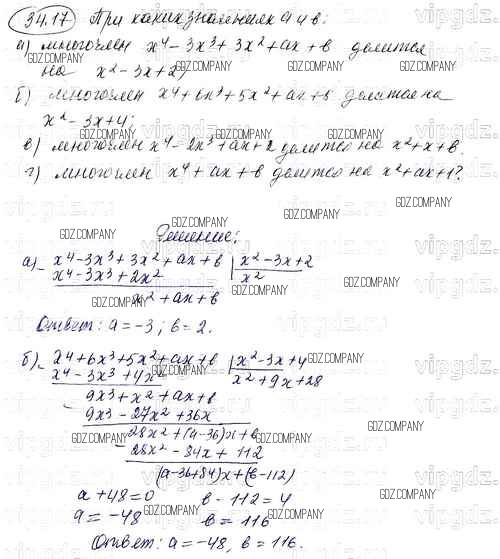 34.17 При каких значениях a и b:
а) многочлен x⁴ - 3x³ + 3x² + ax + b делится
на x² - 3x + 2;
б) многочлен x⁴ + 6x³ + 5x² + ax + b делится на
x² - 3x + 4;
в) многочлен x⁴ - 2x³ + ax + 2 делится на x² + x + b.
г) многочлен x⁴ + ax + b делится на x² + ax + 1?
Решение:
а) - x⁴ - 3x³ + 3x² + ax + b | x² - 3x + 2
x⁴ - 3x³ + 2x² x²
x² + ax + b
Ответ: a = -3; b = 2.
б) - x⁴ + 6x³ + 5x² + ax + b | x² - 3x + 4
x⁴ - 3x³ + 4x² x² + 9x + 28
- 9x³ + x² + ax + b
9x³ - 27x² + 36x
- 28x² + (a - 36)x + b
28x² - 84x + 112
(a - 36 + 84)x + (b - 112)
a + 48 = 0 b - 112 = 4
a = -48 b = 116
Ответ: a = -48, b = 116.
GDZ.COMPANY
vipgdz.ru